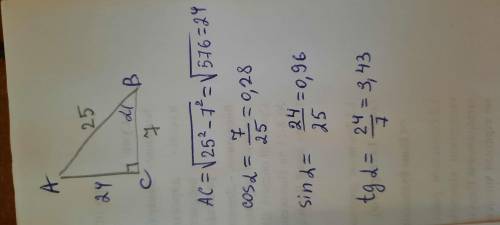 A
25
B
α
24
7
C
AC = √25² - 7² = √576 = 24
cos α = 7/25 = 0,28
sin α = 24/25 = 0,96
tg α = 24/7 = 3,43